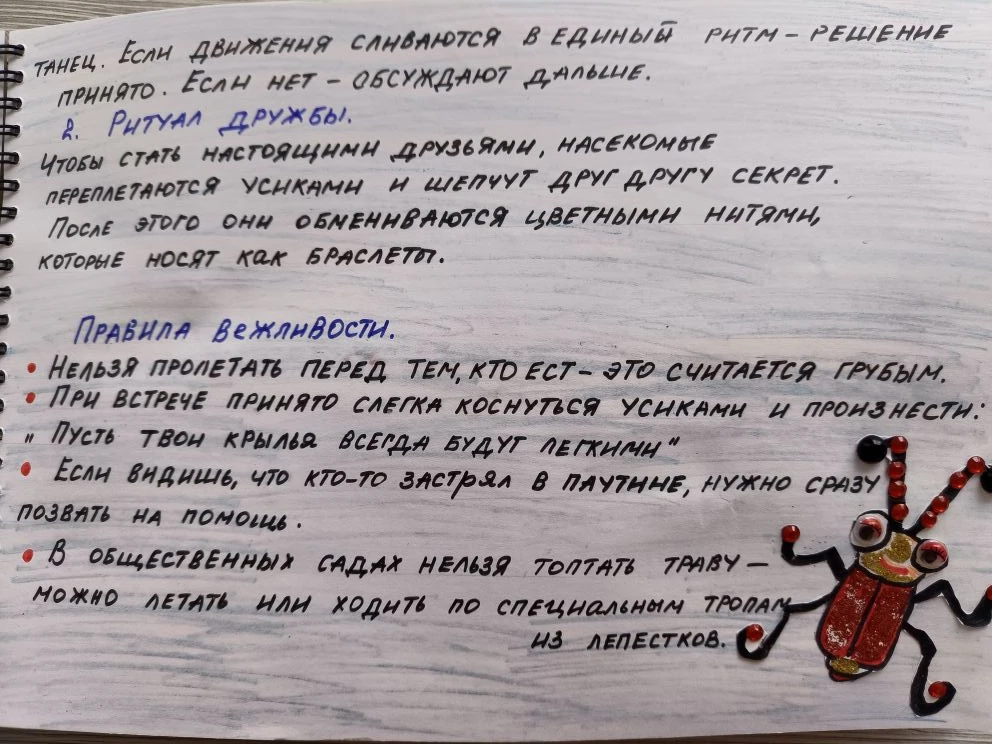 танец. Если движения сливаются в единый ритм – решение
принято. Если нет – обсуждают дальше.
2. Ритуал дружбы.
Чтобы стать настоящими друзьями, насекомые
переплетаются усиками и шепчут друг другу секрет.
После этого они обмениваются цветными нитями,
которые носят как браслеты.
Правила вежливости.
• Нельзя пролетать перед тем, кто ест – это считается грубым.
• При встрече принято слегка коснуться усиками и произнести:
„Пусть твои крылья всегда будут легкими"
• Если видишь, что кто-то застрял в паутине, нужно сразу
позвать на помощь.
• В общественных садах нельзя топтать траву –
можно летать или ходить по специальным тропам
из лепестков.